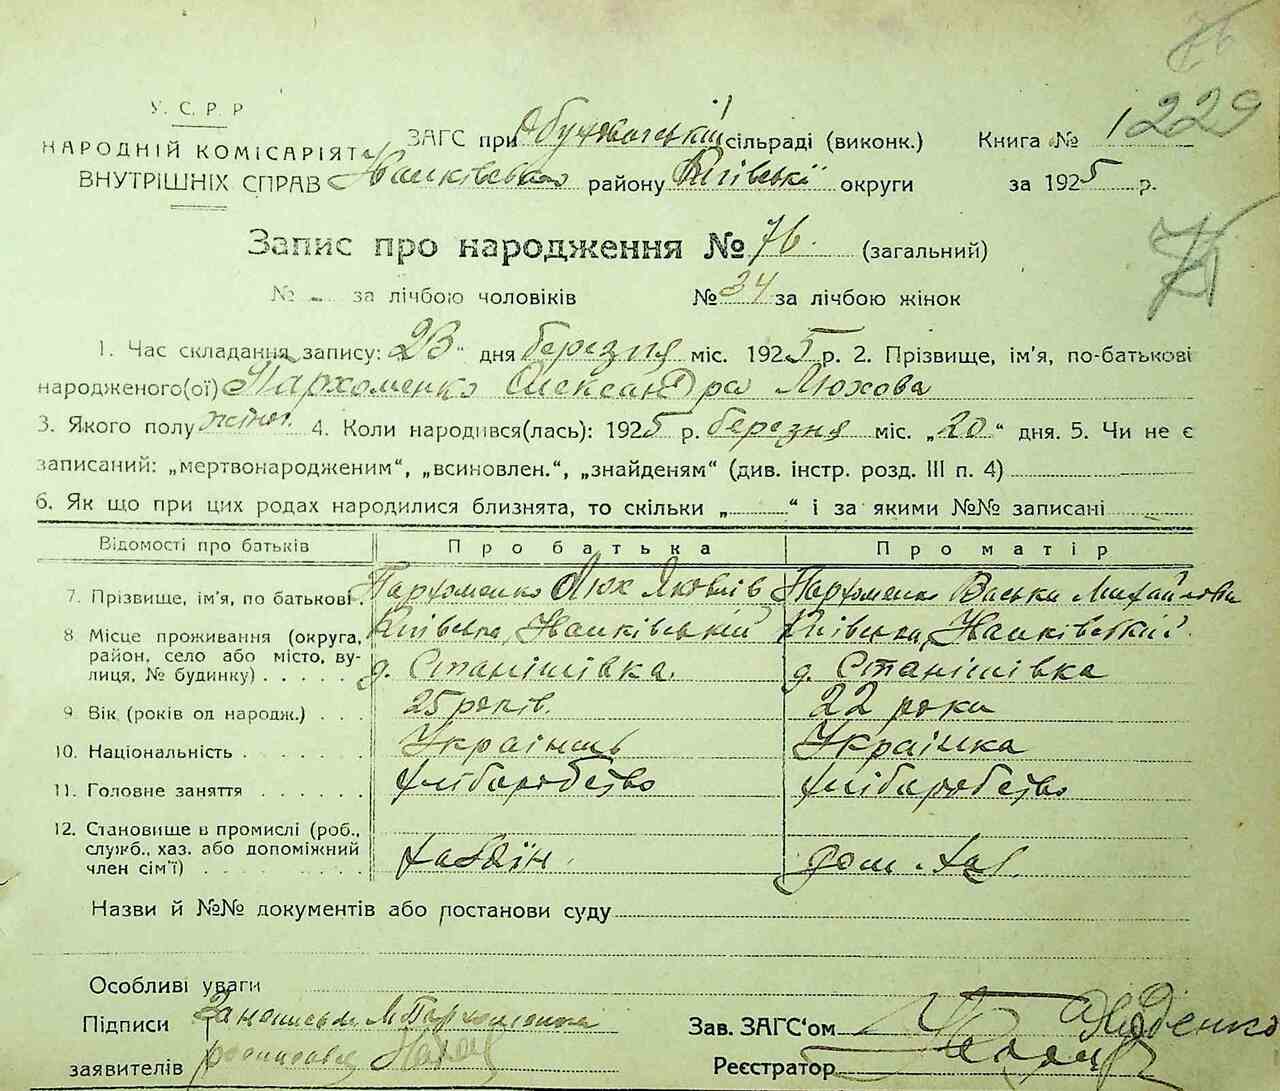 76
У. С. Р. Р.
НАРОДНІЙ КОМІСАРІЯТ
ВНУТРІШНІХ СПРАВ
ЗАГС при Обуховській сільраді (виконк.) Книга № 1 229
району Київської округи за 1925 р.
Запис про народження № 76. (загальний)
№ за лічбою чоловіків № 34 за лічбою жінок
1. Час складання запису: „23“ дня березня міс. 1925 р. 2. Прізвище, ім'я, по-батькові
народженого(ої) Пархоменко Олександра Люхова
3. Якого полу жіноч. 4. Коли народився(лась): 1925 р. березня міс. „20“ дня. 5. Чи не є
записаний: „мертвонародженим“, „всиновлен.“, „знайденям“ (див. інстр. розд. III п. 4)
6. Як що при цих родах народилися близнята, то скільки „ “ і за якими №№ записані
Відомості про батьків Про батька Про матір
7. Прізвище, ім'я, по батькові . Пархоменко Люх Яковлів Пархоменко Васька Михайлова
8 Місце проживання (округа, Київська, Київська,
район, село або місто, ву-
лиця, № будинку) . . . . . д. Станішівка. д. Станішівка
9 Вік (років од народж.) . . . 25 років. 22 роки
10. Національність . . . . . . Українець Українка
11. Головне заняття . . . . . хліборобство хліборобство
12. Становище в промислі (роб.,
служб., хаз. або допоміжний хазяїн. дом. хаз.
член сім'ї) . . . . . . . .
Назви й №№ документів або постанови суду
Особливі уваги
Підписи М. Пархоменка Зав. ЗАГС'ом
заявителів Реєстратор